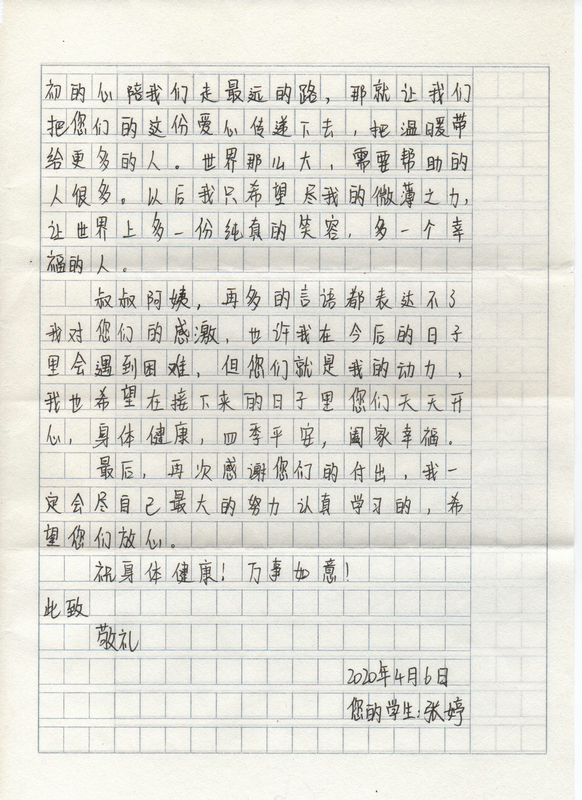 初的心陪我们走最远的路，那就让我们
把您们的这份爱心传递下去，把温暖带
给更多的人。世界那么大，需要帮助的
人很多。以后我只希望尽我的微薄之力，
让世界上多一份纯真的笑容，多一个幸
福的人。
叔叔阿姨，再多的言语都表达不了
我对您们的感激，也许我在今后的日子
里会遇到困难，但您们就是我的动力，
我也希望在接下来的日子里您们天天开
心，身体健康，四季平安，阖家幸福。
最后，再次感谢您们的付出，我一
定会尽自己最大的努力认真学习的，希
望您们放心。
祝身体健康！万事如意！
此致
敬礼
2020年4月6日
您的学生：张婷